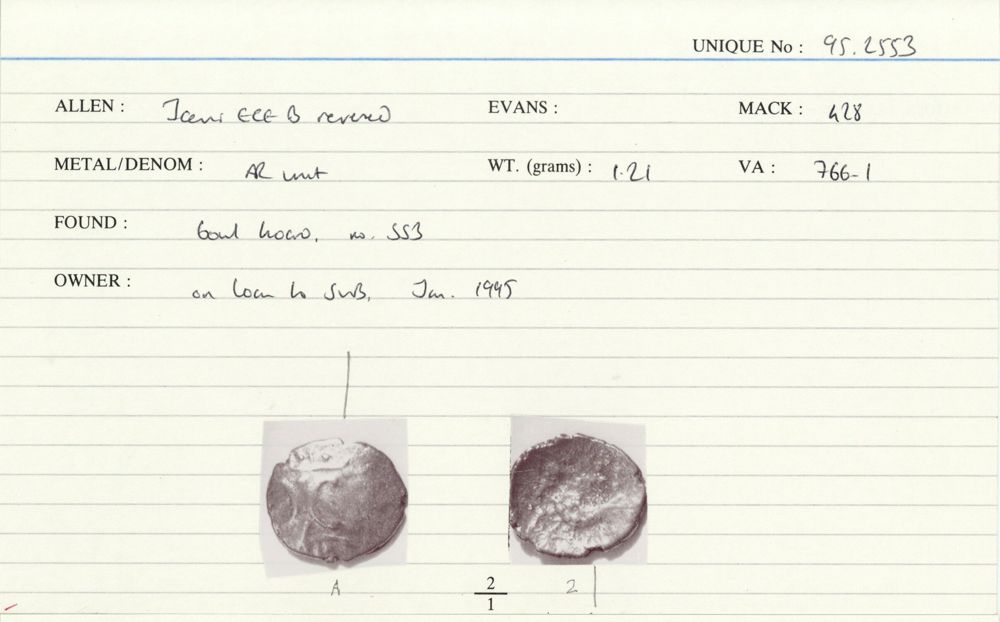 UNIQUE No : 95.2553
ALLEN : Iceni ECE B reversed EVANS : MACK : 428
METAL/DENOM : AR unit WT. (grams) : 1.21 VA : 766-1
FOUND : bowl hoard, no. 553
OWNER : on loan to SWB, Jan. 1995
A 2/1 2